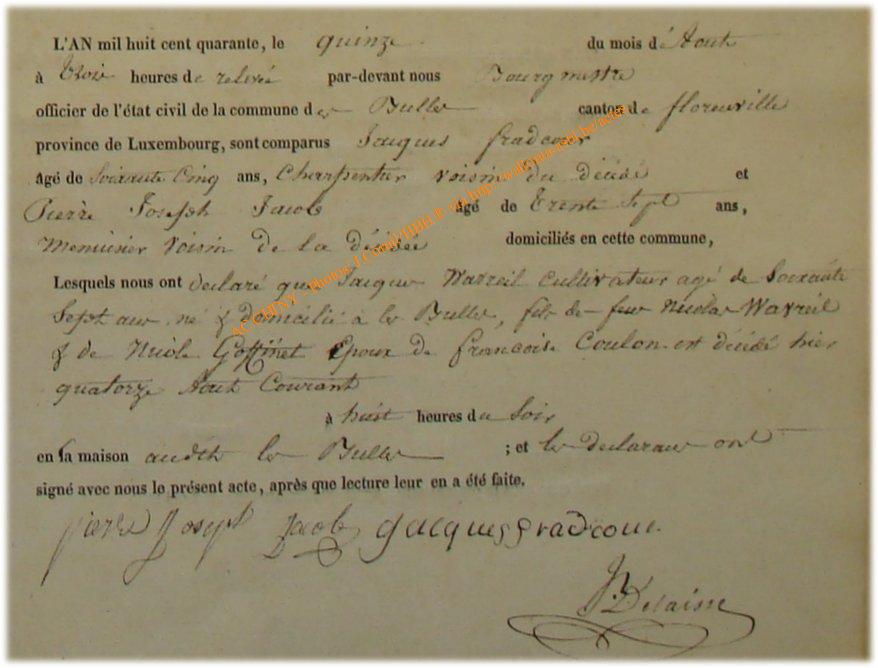 L'AN mil huit cent quarante, le quinze du mois de Aout
à trois heures de relevée par-devant nous Bourgmestre
officier de l'état civil de la commune des Bulles canton de florenville
province de Luxembourg, sont comparus Jacques fradcour
âgé de Soixante Cinq ans, Charpentier voisin du décédé et
Pierre Joseph Jacob âgé de Trente Sept ans,
Menuisier Voisin de la décédée domiciliés en cette commune,
Lesquels nous ont declaré que Jacque Warreil Cultivateur agé de Soixante
Sept ans né & domicilié à les Bulles, fils de feu Nicolas Warreil
& de Nicole Goffinet Epoux de francoise Coulon est décédé hier
quatorze Aout Courant
à huit heures du Soir
en sa maison audit les Bulles ; et les declarans ont
signé avec nous le présent acte, après que lecture leur en a été faite.
pierre Joseph Jacob Jacques fradcour
Delaisse